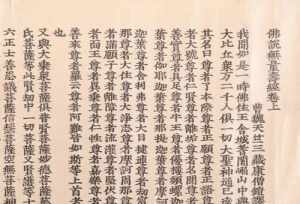 佛說無量壽經卷上
曹魏天竺三藏康僧鎧譯
我聞如是一時佛住王舍城耆闍崛山中與
大比丘眾萬二千人俱一切大聖神通已達
其名曰尊者了本際尊者正願尊者正語尊
者大號尊者仁賢尊者離垢尊者名聞尊者
善實尊者具足尊者牛王尊者優樓頻蠡迦
葉尊者伽耶迦葉尊者那提迦葉尊者摩訶
迦葉尊者舍利弗尊者大目揵連尊者劫賓
那尊者大住尊者大淨志尊者摩訶周那尊
者滿願子尊者離障尊者流灌尊者堅伏尊
者面王尊者異乘尊者仁性尊者嘉樂尊者
善來尊者羅云尊者阿難皆如斯等上首者
也
又與大乘眾菩薩俱普賢菩薩妙德菩薩慈
氏菩薩等此賢劫中一切菩薩又賢護等十
六正士善思議菩薩信慧菩薩空無菩薩